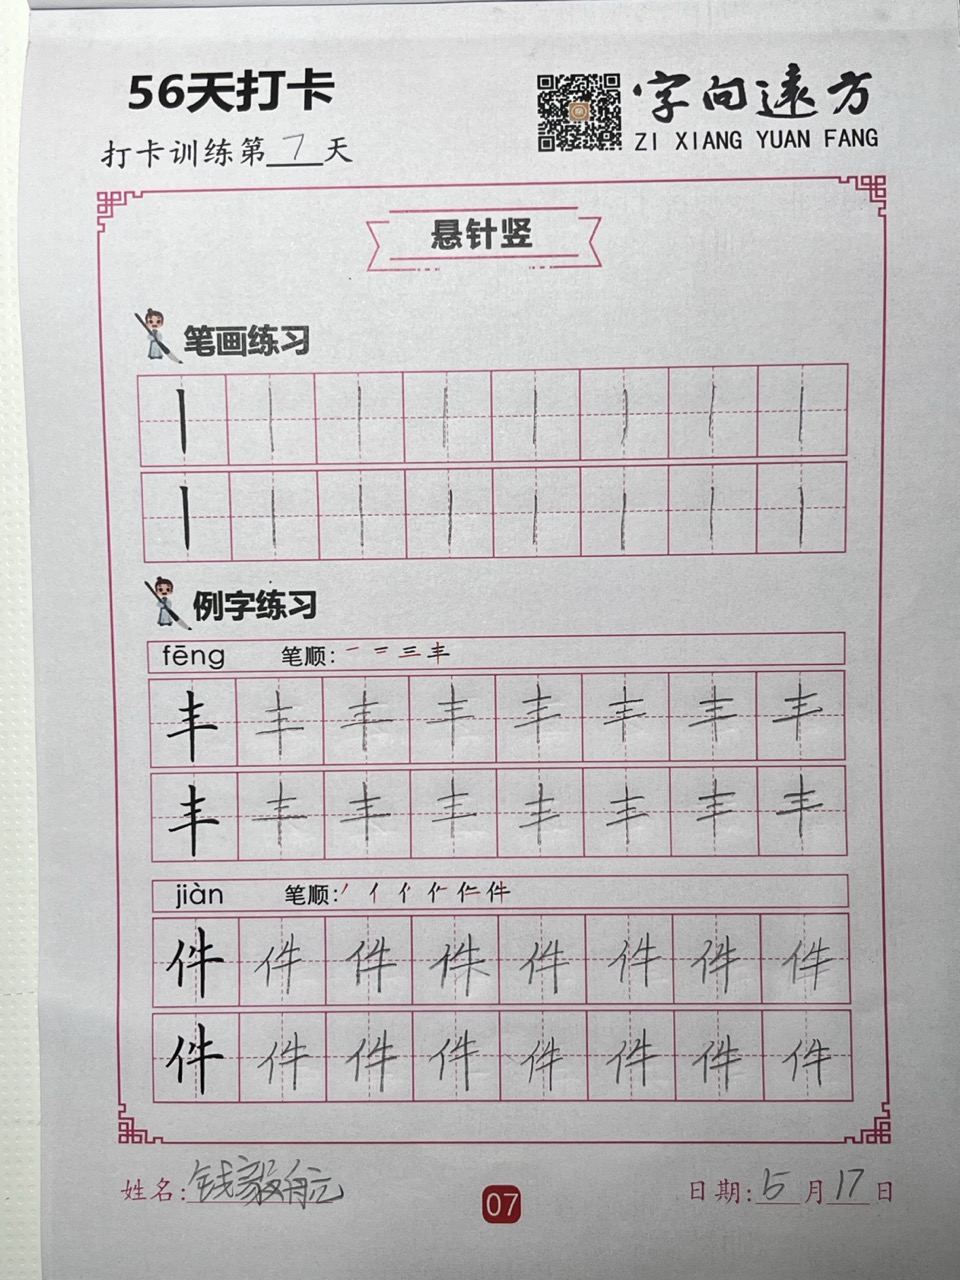 56天打卡
字向远方
ZI XIANG YUAN FANG
打卡训练第7天
悬针竖
笔画练习
丨丨丨丨丨丨丨丨
丨丨丨丨丨丨丨丨
例字练习
fēng 笔顺: 一 二 三 丰
丰丰丰丰丰丰丰丰
丰丰丰丰丰丰丰丰
jiàn 笔顺: 丿 亻 亻 亻 仁 件
件件件件件件件件
件件件件件件件件
姓名: 钱毅航
07
日期: 5月17日